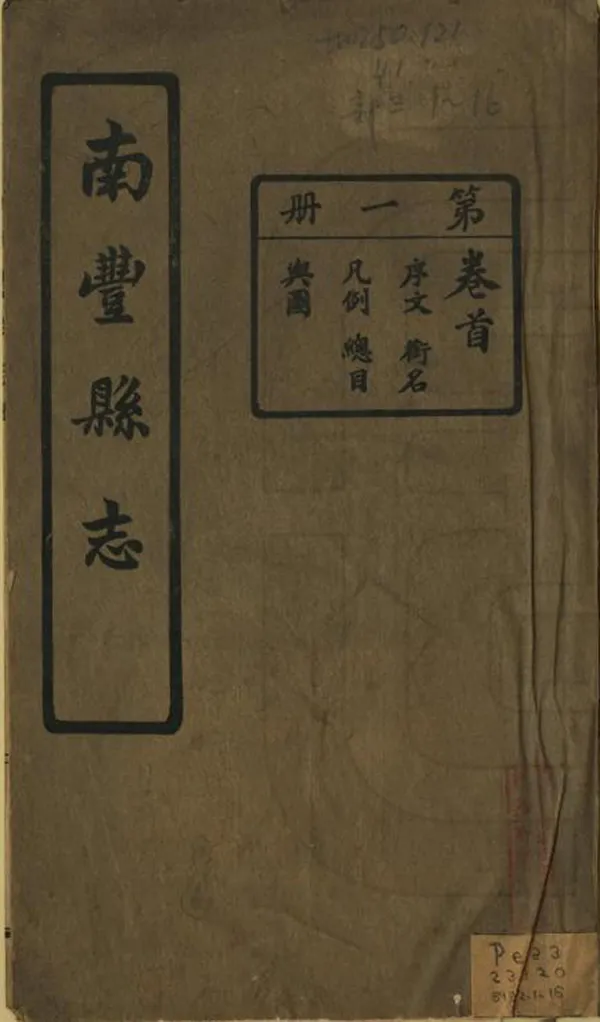 南豐縣志
第一册
卷首
序文 銜名
凡例 總目
輿圖
Pe23